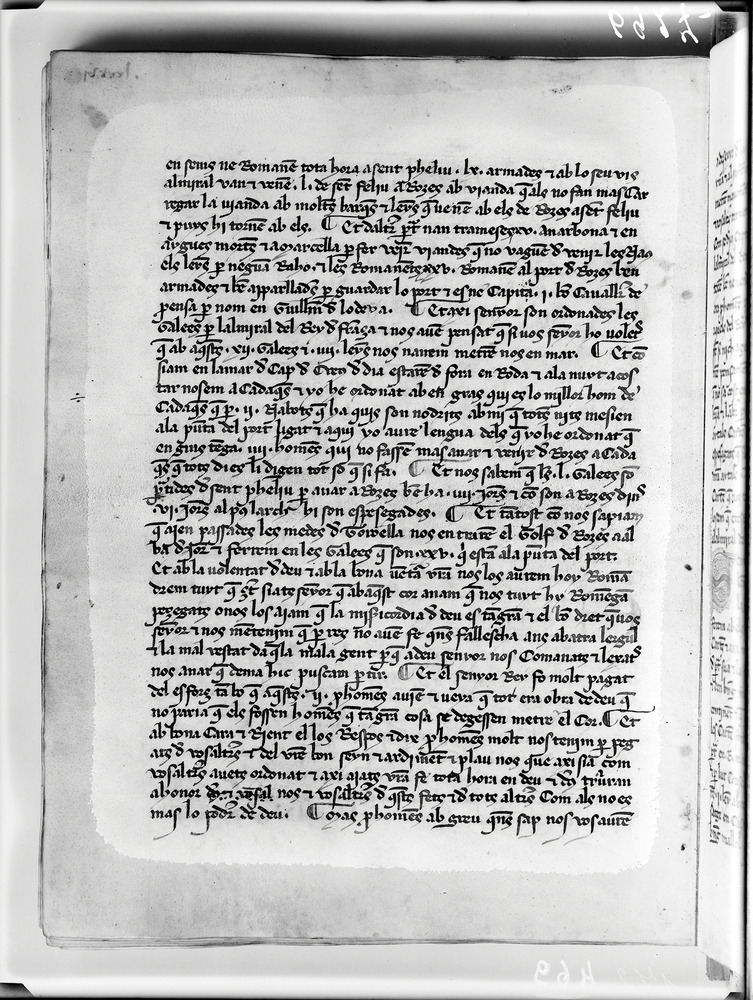 en sems ne Romanē tota hora a sent pheliu · lx· armades & ab lo seu vis
almiral van & venē · l· de sēt feliu a Rozes ab vianda q̄ als no fan mas Car
regar la vianda ab moltes barq̄s & leys q̄ venē ab els de Rozes a sēt feliu
& puys hi tornē ab els. ¶ Et daltr̄ pt̄ nan trameses xv. a narbona & en
aygues mortes & a Marcella p̄ fer venir viandes q̄ no vaguē d̄ venir les Naus
els leys p̄ neguā Raho. & les Romanētes xxv· Romanē al port d̄ Rozes bē
armades & bē apparllades p̄ guardar lo port & es ne Capitā · i · bō Cavallr̄ de
p̄ensa p̄ nom en Guillm̄ d̄ lodeva. ¶ Et axi senyor son ordonades les
Galees p̄ lalmiral del Rey d̄ frāça & nos auē pensat q̄ si vos seyor ho volets
q̄ ab aq̄stes · xij· Galees & · iiij· leys nos nauem metrē nos en mar. ¶ Et cō
siam en la mar d̄ Cap d̄ Creu d̄ dia estarē d̄ fora en Roda & a la nuyt acos
tar nos em a Cadaq̄s & yo he ordonat ab en gras qui es lo millor hom de
Cadaq̄s q̄ p̄ · ij· Nabots q̄ ha quis son nodrits ab mi q̄ tots nits mesien
a la pūta del port ligat & aqui yo aure lengua dels q̄ yo he ordonat q̄
en gras tēga · iiij· homes qui no fassē mas anar & venir d̄ Rozes a Cada
q̄s q̄ tots dies li digen tot so q̄ si fa. ¶ Et nos sabem q̄ lz· l· Galees so
p̄tides d̄ sent pheliu p̄ anar a Rozes bē ha · iiij· jorns & cō son a Rozes dins
· vi· jorns al pus larch hi son espesegades. ¶ Et tātost cō nos sapiam
q̄ aien passades les medes d̄ Gorella nos entrarē el Golf d̄ Rozes a al
ba d̄ jorn & ferrem en les Galees q̄ son xxv· q̄ està a la pūta del port.
Et ab la volentat d̄ deu & ab la bona uētā vr̄a nos los aurem hoy Romā
drem tuyt q̄ siats seyor q̄ ab aq̄st cor anam q̄ nos tuyt hy Romēgā
pezegats o nos los aiam q̄ la misericordia d̄ deu es tā grā & el bō dret q̄ vos
seyor & nos mētenim q̄ p̄ res no auē fe q̄ns fallescha ans abatra lergull
& la maluestat daq̄la mala gent p̄ q̄ a deu senyor nos Comanats & lexats
nos anar q̄ dema hic puscam p̄tir. ¶ Et el senyor Rey fo molt pagat
del esforç tā bo q̄ aq̄sts · ij· p̄homes auiē & veura q̄ tot era obra de deu q̄
no paria q̄ els fossen homes q̄ tā grā cosa se degessen metre el Cor. ¶ Et
ab bona Cara & Rient el los Respos & dix p̄homes molt nos tenim p̄ peg
ats d̄ vosaltres & del vr̄e bon seyn & ardimēt & plau nos que axi sia com
vosaltres auets ordonat & axi aiats vr̄a fe tota hora en deu & ds̄ trūran
ab honor nos & vosaltres d̄ q̄sts fets & d̄ tots altres Com als no es
mas lo poder de deu. ¶ Mas p̄homes ab greu q̄ns sap nos vos aurē